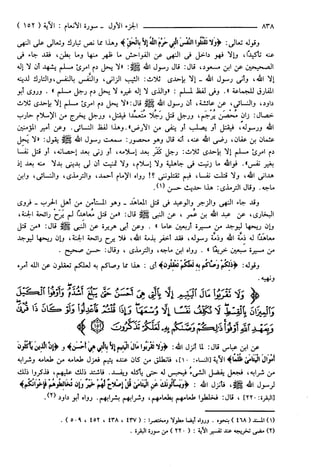 ٨٣٨ الجزء الأول ـ سورة الأنعام : الآية ( ١٥٢ )
وقوله تعالى: ﴿وَلَا تَقْتُلُوا النَّفْسَ الَّتِي حَرَّمَ اللَّهُ إِلَّا بِالْحَقِّ﴾ وهذا مما نص تبارك وتعالى على النهي
عنه تأكيدًا، وإلا فهو داخل في النهي عن الفواحش ما ظهر منها وما بطن، فقد جاء في
الصحيحين عن ابن مسعود، قال: قال رسول الله ﷺ: «لا يحل دم امرئ مسلم يشهد أن لا إله
إلا الله، وأني رسول الله ـ إلا بإحدى ثلاث: الثيب الزاني، والنفس بالنفس، والتارك لدينه
المفارق للجماعة». وفي لفظ لمسلم: «والذي لا إله غيره لا يحل دم رجل مسلم». وروى أبو
داود، والنسائي، عن عائشة، أن رسول الله ﷺ قال: «لا يحل دم امرئ مسلم إلا بإحدى ثلاث
خصال: زان محصن يرجم، ورجل قتل رجلاً متعمدًا فيقتل، ورجل يخرج من الإسلام حارب
الله ورسوله، فيقتل أو يصلب أو ينفى من الأرض». وهذا لفظ النسائي. وعن أمير المؤمنين
عثمان بن عفان، رضي الله عنه، أنه قال وهو محصور: سمعت رسول الله ﷺ يقول: «لا يحل
دم امرئ مسلم إلا بإحدى ثلاث: رجل كفر بعد إسلامه، أو زنى بعد إحصانه، أو قتل نفسا
بغير نفس». فوالله ما زنيت في جاهلية ولا إسلام، ولا تمنيت أن لي بديني بدلا منه بعد إذ
هداني الله، ولا قتلت نفسا، فبم تقتلونني ؟! رواه الإمام أحمد، والترمذي، والنسائي، وابن
ماجه. وقال الترمذي: هذا حديث حسن (١).
وقد جاء النهي والزجر والوعيد في قتل المعاهد ـ وهو المستأمن من أهل الحرب ـ فروى
البخاري، عن عبد الله بن عمر، عن النبي ﷺ قال: «من قتل معاهدًا لم يرح رائحة الجنة،
وإن ريحها ليوجد من مسيرة أربعين عاما». وعن أبي هريرة عن النبي ﷺ قال: «من قتل
معاهدًا له ذمة الله وذمة رسوله، فقد أخفر بذمة الله، فلا يرح رائحة الجنة، وإن ريحها ليوجد
من مسيرة سبعين خريفًا». رواه ابن ماجه، والترمذي، وقال: حسن صحيح.
وقوله: ﴿ذَٰلِكُمْ وَصَّاكُم بِهِ لَعَلَّكُمْ تَعْقِلُونَ﴾ أي: هذا مما وصاكم به لعلكم تعقلون عن الله أمره
ونهيه.
﴿وَلَا تَقْرَبُوا مَالَ الْيَتِيمِ إِلَّا بِالَّتِي هِيَ أَحْسَنُ حَتَّىٰ يَبْلُغَ أَشُدَّهُ وَأَوْفُوا الْكَيْلَ
وَالْمِيزَانَ بِالْقِسْطِ لَا نُكَلِّفُ نَفْسًا إِلَّا وُسْعَهَا وَإِذَا قُلْتُمْ فَاعْدِلُوا وَلَوْ كَانَ ذَا قُرْبَىٰ
وَبِعَهْدِ اللَّهِ أَوْفُوا ذَٰلِكُمْ وَصَّاكُم بِهِ لَعَلَّكُمْ تَذَكَّرُونَ﴾
عن ابن عباس قال: لما أنزل الله: ﴿وَلَا تَقْرَبُوا مَالَ الْيَتِيمِ إِلَّا بِالَّتِي هِيَ أَحْسَنُ﴾ و﴿إِنَّ الَّذِينَ يَأْكُلُونَ
أَمْوَالَ الْيَتَامَىٰ ظُلْمًا﴾ الآية [النساء: ١٠]، فانطلق من كان عنده يتيم فعزل طعامه من طعامه وشرابه
من شرابه، فجعل يفضل الشيء فيحبس له حتى يأكله ويفسد. فاشتد ذلك عليهم، فذكروا ذلك
لرسول الله ﷺ، فأنزل الله: ﴿وَيَسْأَلُونَكَ عَنِ الْيَتَامَىٰ قُلْ إِصْلَاحٌ لَّهُمْ خَيْرٌ وَإِن تُخَالِطُوهُمْ فَإِخْوَانُكُمْ﴾
[البقرة: ٢٢٠]، قال: فخلطوا طعامهم بطعامهم، وشرابهم بشرابهم. رواه أبو داود (٢).
(١) المسند ( ٤٦٨ ) بنحوه . ورواه أيضا مطولا ومختصرا : ( ٤٣٧ ، ٤٣٨ ، ٤٥٢ ، ٥٠٩ ) .
(٢) مضى تخريجه عند تفسير الآية : ( ٢٢٠ ) من سورة البقرة .